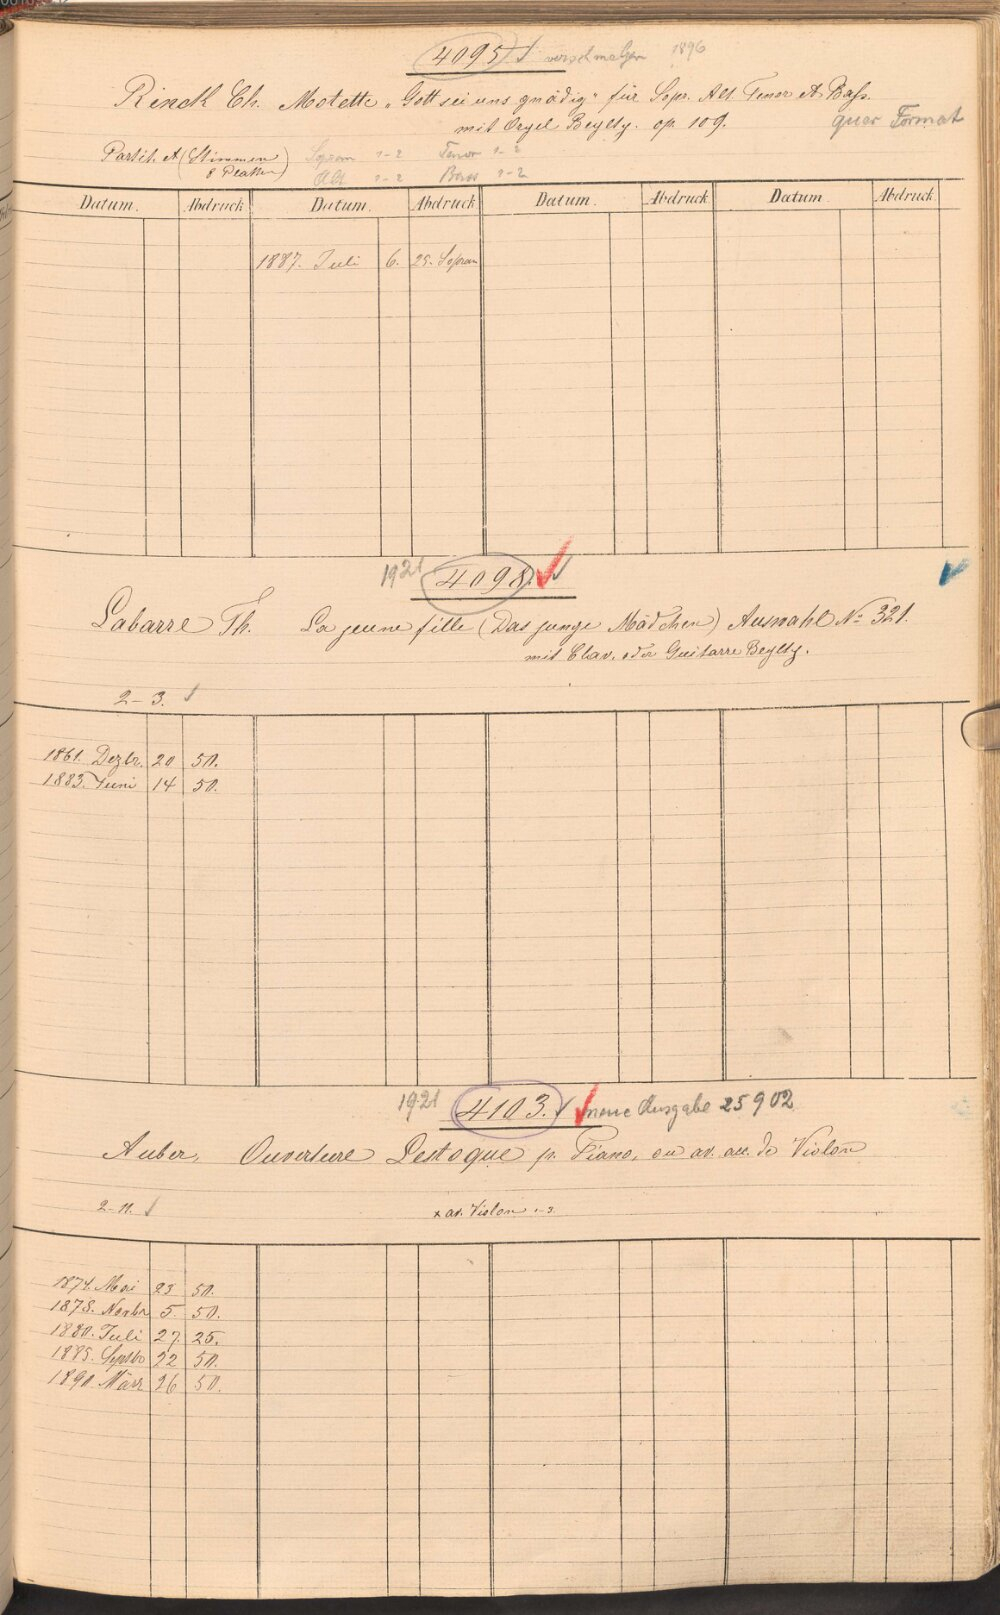 4095 verschmelzen 1896
Rinck Ch. Motette „Gott sei uns gnädig“ für Sopr. Alt Tenor & Bass.
mit Orgel Beyltg. op. 109. quer Format
Partit. & (Stimmen Sopran 1-2 Tenor 1-2
8 Platten) Alt 1-2 Bass 1-2
Datum. Abdruck Datum. Abdruck Datum. Abdruck. Datum. Abdruck.
1887. Juli 6. 25. Sopran
1921 4098.
Labarre Th. La jeune fille (Das junge Mädchen) Auswahl No 321.
mit Clav. oder Guitarre Beyltg.
2-3.
1861. Dezbr. 20 50.
1883. Juni 14 50.
1921 4103. neue Ausgabe 25902
Auber, Ouverture Lestoque p. Piano, ou av. acc. de Violon
2-11. av. Violon 1-3
1874. Mai 23 50.
1878. Novbr 5. 50.
1880. Juli 27. 25.
1885. Septbr 22 50.
1890. März 26 50.